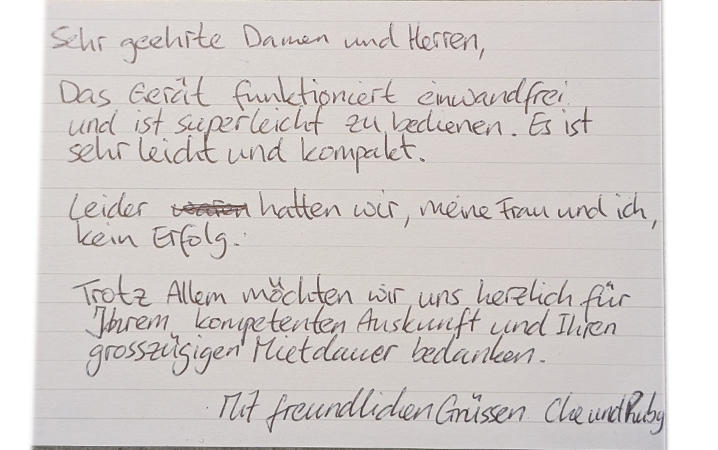 Sehr geehrte Damen und Herren,
Das Gerät funktioniert einwandfrei
und ist superleicht zu bedienen. Es ist
sehr leicht und kompakt.
Leider hatten wir, meine Frau und ich,
kein Erfolg.
Trotz Allem möchten wir uns herzlich für
Ihrem kompetenten Auskunft und Ihren
grosszügigen Mietdauer bedanken.
Mit freundlichen Grüssen und Ruby